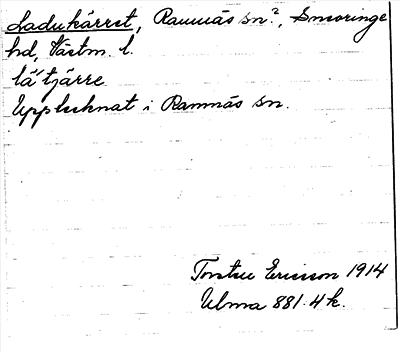 Ladukärret, Ramnäs sn?, Snevringe
hd, Västm. l.
là'tjärre
Upptecknat i Ramnäs sn.
Torsten Ericsson 1914
Ulma 881.4 k.